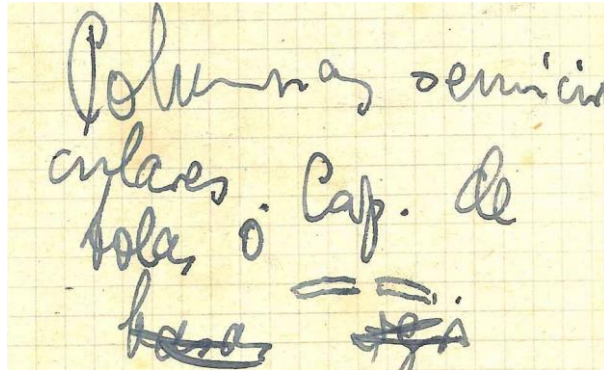 Columnas semicir
culares. Cap. de
bolas ó